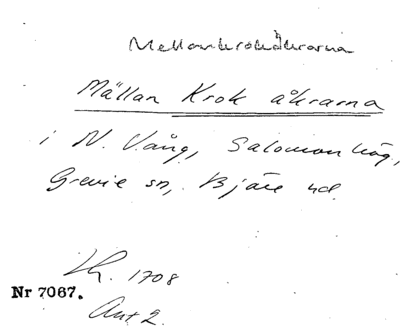 Mellankrokåkrarna
Mällan Krok åkrarna
i N. Vång, Salomonhög,
Grevie sn, Bjäre hd.
Lh. 1708
Nr 7067.
Akt 2.